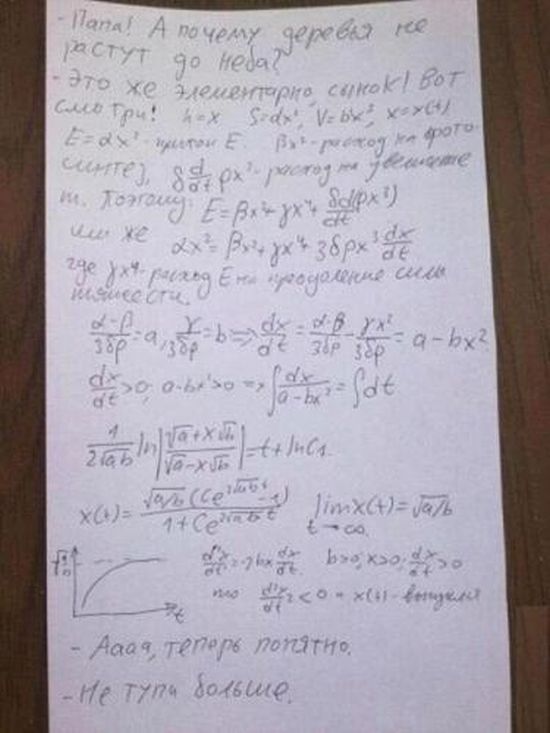 - Папа! А почему деревья не
растут до неба?
- Это же элементарно, сынок! Вот
смотри! h=x S=dx², V=bx³, x=x(t)
E=αx² - приток E. βx² - расход на фото-
синтез, δ d/dt ρx³ - расход на увеличение
m. Поэтому: E=βx²+γx⁴+δd(ρx³)/dt
или же αx²=βx²+γx⁴+3δρx² dx/dt
где γx⁴ - расход E на преодоление силы
тяжести.
(α-β)/3δρ = a, γ/3δρ = b => dx/dt = (α-β)/3δρ - γx²/3δρ = a - bx²
dx/dt>0; a-bx²>0 => ∫dx/(a-bx²) = ∫dt
1/(2√ab) ln|(√a+x√b)/(√a-x√b)| = t + lnC₁.
x(t) = √a/b (Ce^(2√ab t) - 1)/(1+Ce^(2√ab t)) lim x(t) = √a/b
t→∞
√a/b t d²x/dt² = -2bx dx/dt. b>0; x>0; dx/dt>0
то d²x/dt² < 0 => x(t) - выпукла
- Аааа, теперь понятно.
- Не тупи больше.